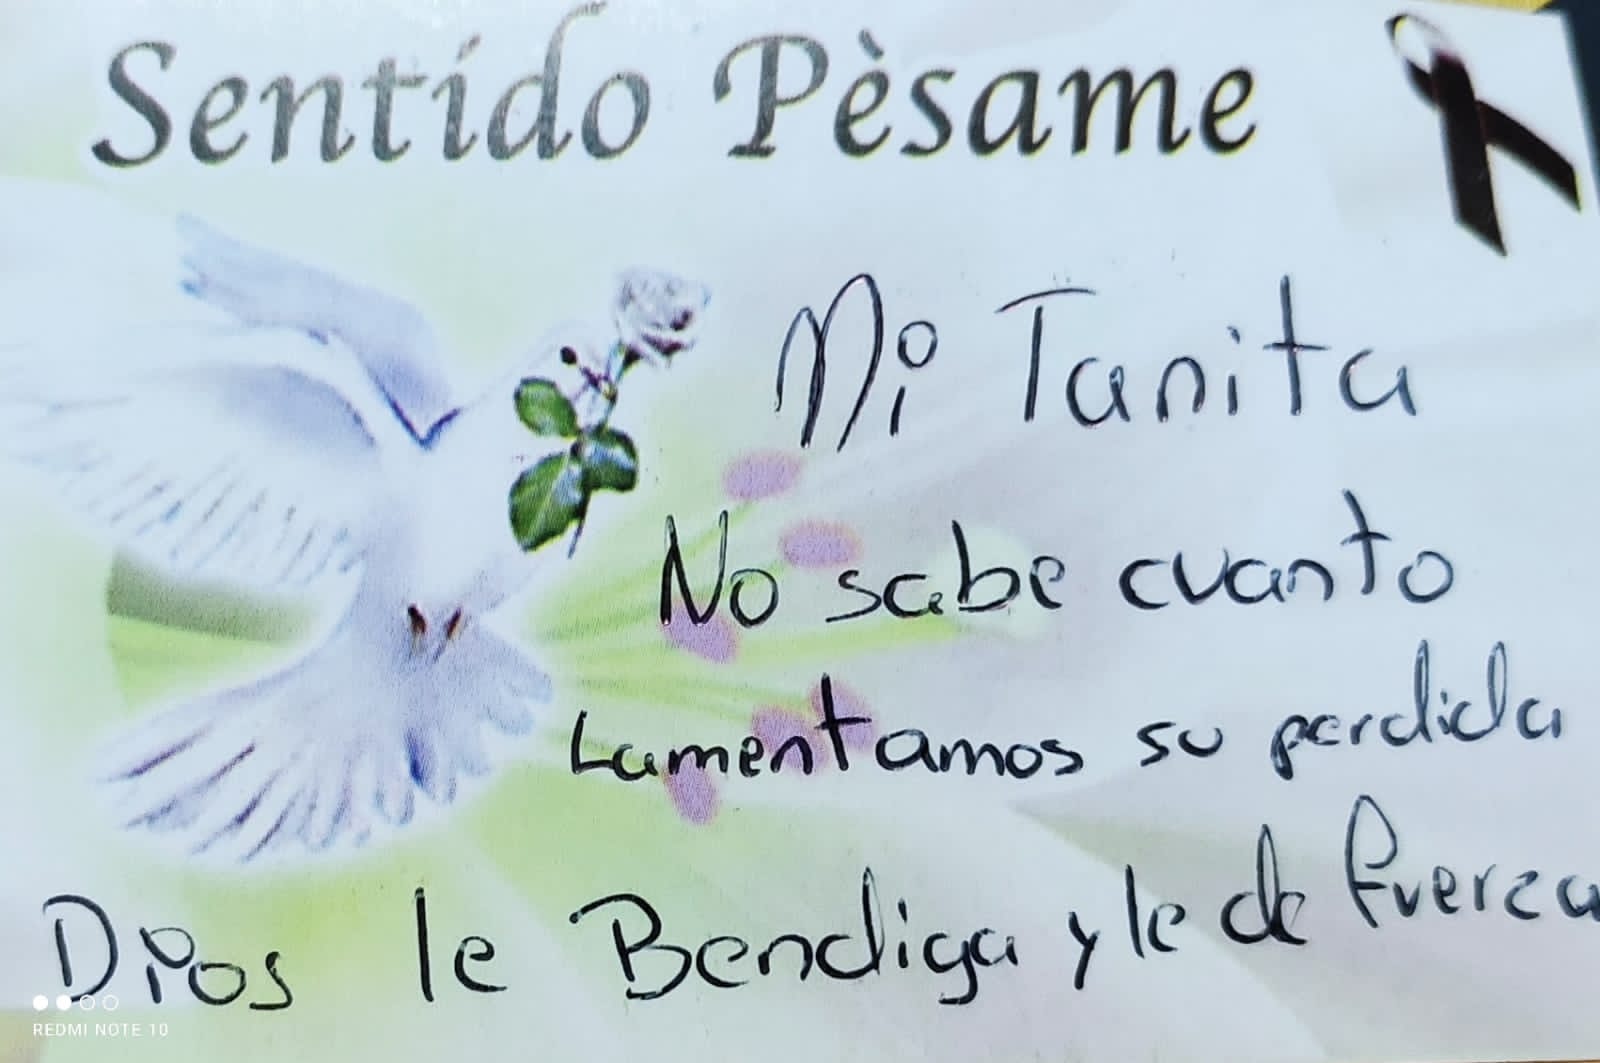 Sentido Pèsame
Mi Tanita
No sabe cuanto
Lamentamos su perdida
Dios le Bendiga y le de fuerza
REDMI NOTE 10